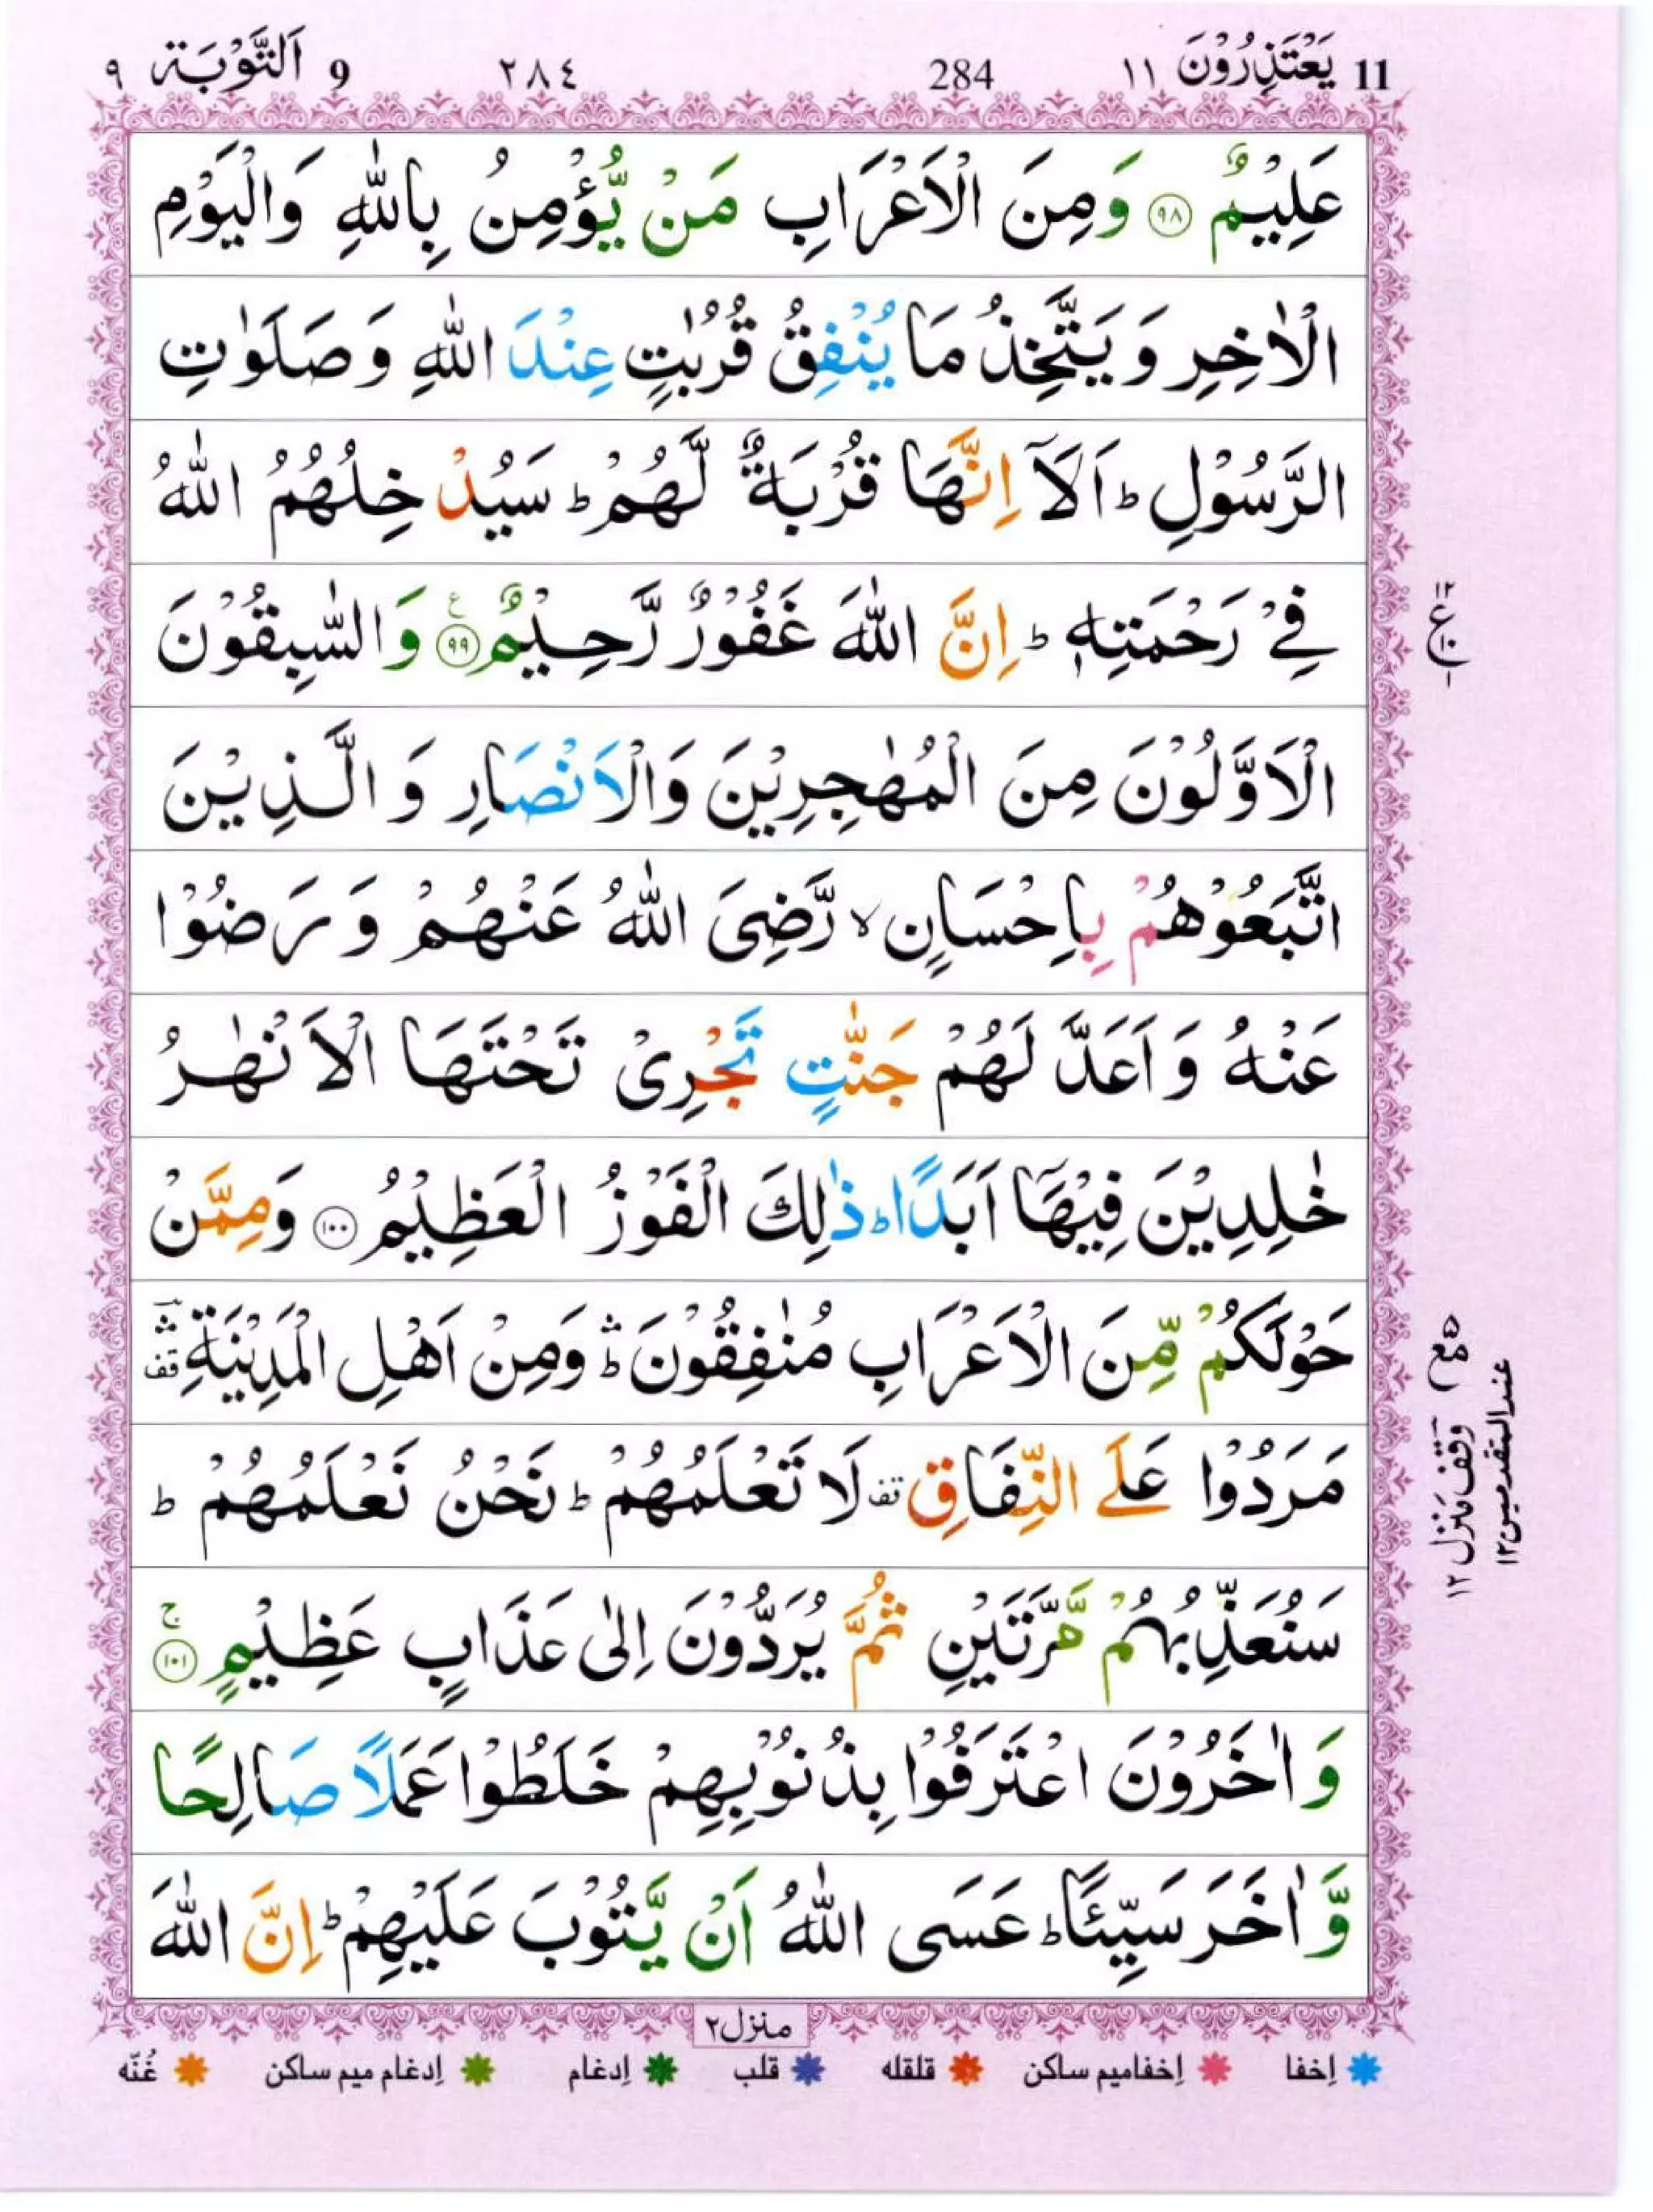 11 يَعْتَذِرُوْنَ ١١ 284 ٢٨٤ 9 اَلتَّوْبَة ٩
عَلِيْمٌ ﴿٩٨﴾ وَمِنَ الْاَعْرَابِ مَنْ يُّؤْمِنُ بِاللّٰهِ وَالْيَوْمِ
الْاٰخِرِ وَيَتَّخِذُ مَا يُنْفِقُ قُرُبٰتٍ عِنْدَ اللّٰهِ وَصَلَوٰتِ
الرَّسُوْلِ ؕ اَلَاۤ اِنَّهَا قُرْبَةٌ لَّهُمْ ؕ سَيُدْخِلُهُمُ اللّٰهُ
فِيْ رَحْمَتِهٖ ؕ اِنَّ اللّٰهَ غَفُوْرٌ رَّحِيْمٌ ﴿٩٩﴾ ع وَالسّٰبِقُوْنَ
١٢ ع ١٠ ١
الْاَوَّلُوْنَ مِنَ الْمُهٰجِرِيْنَ وَالْاَنْصَارِ وَالَّذِيْنَ
اتَّبَعُوْهُمْ بِاِحْسَانٍ ۙ رَّضِىَ اللّٰهُ عَنْهُمْ وَرَضُوْا
عَنْهُ وَاَعَدَّ لَهُمْ جَنّٰتٍ تَجْرِىْ تَحْتَهَا الْاَنْهٰرُ
خٰلِدِيْنَ فِيْهَاۤ اَبَدًا ؕ ذٰلِكَ الْفَوْزُ الْعَظِيْمُ ﴿١٠٠﴾ وَمِمَّنْ
حَوْلَكُمْ مِّنَ الْاَعْرَابِ مُنٰفِقُوْنَ ؕۛ وَمِنْ اَهْلِ الْمَدِيْنَةِ ۛ قف
مَرَدُوْا عَلَى النِّفَاقِ قف لَا تَعْلَمُهُمْ ؕ نَحْنُ نَعْلَمُهُمْ ؕ
وقف منزل ١٢
عند المتقدمين ١٢
سَنُعَذِّبُهُمْ مَّرَّتَيْنِ ثُمَّ يُرَدُّوْنَ اِلٰى عَذَابٍ عَظِيْمٍ ﴿١٠١﴾ ج
وَاٰخَرُوْنَ اعْتَرَفُوْا بِذُنُوْبِهِمْ خَلَطُوْا عَمَلًا صَالِحًا
وَّاٰخَرَ سَيِّئًا ؕ عَسَى اللّٰهُ اَنْ يَّتُوْبَ عَلَيْهِمْ ؕ اِنَّ اللّٰهَ
منزل ٢
اِخفا اِخفا ميم ساكن قلقله قلب اِدغام اِدغام ميم ساكن غُنّه